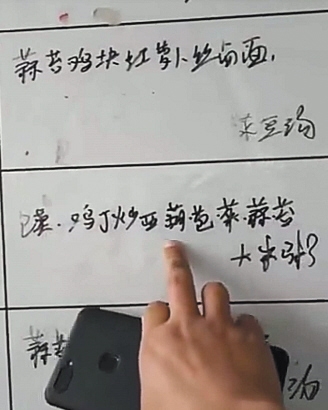 蒜苔鸡块红萝卜丝卤面,
米豆汤
馍.鸡丁炒西葫芭菜.蒜苔
大米粥
蒜苔
汤